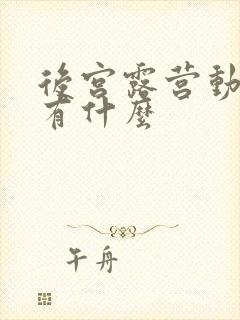 後宮露营動
有什麼
午舟